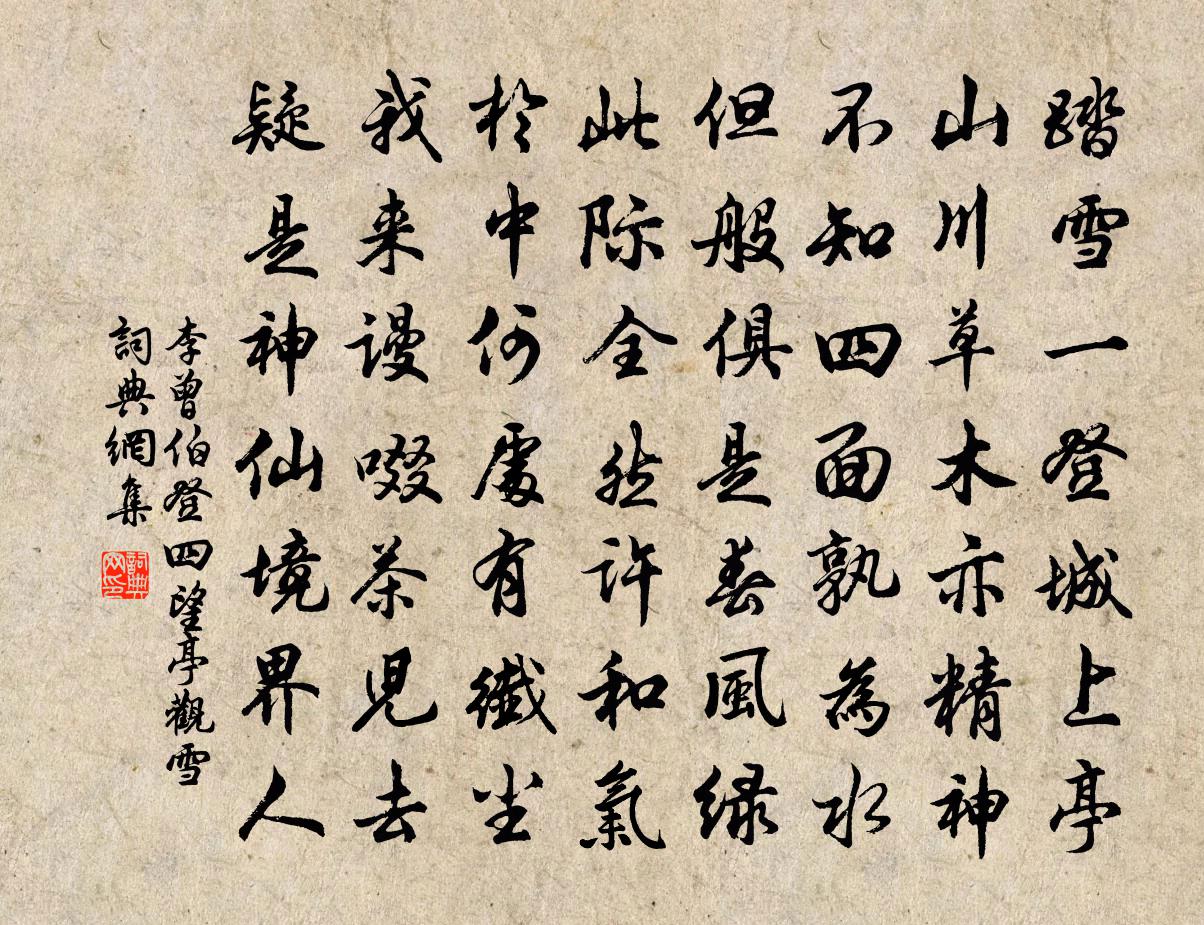 踏雪一登城上亭
山川草木亦精神
不知四面孰為水
但般俱是春風綠
此际全然许和氣
於中何處有纖尘
我来谩啜茶児去
疑是神仙境界人
李曾伯登四望亭觀雪
詞典網集
詞典网印